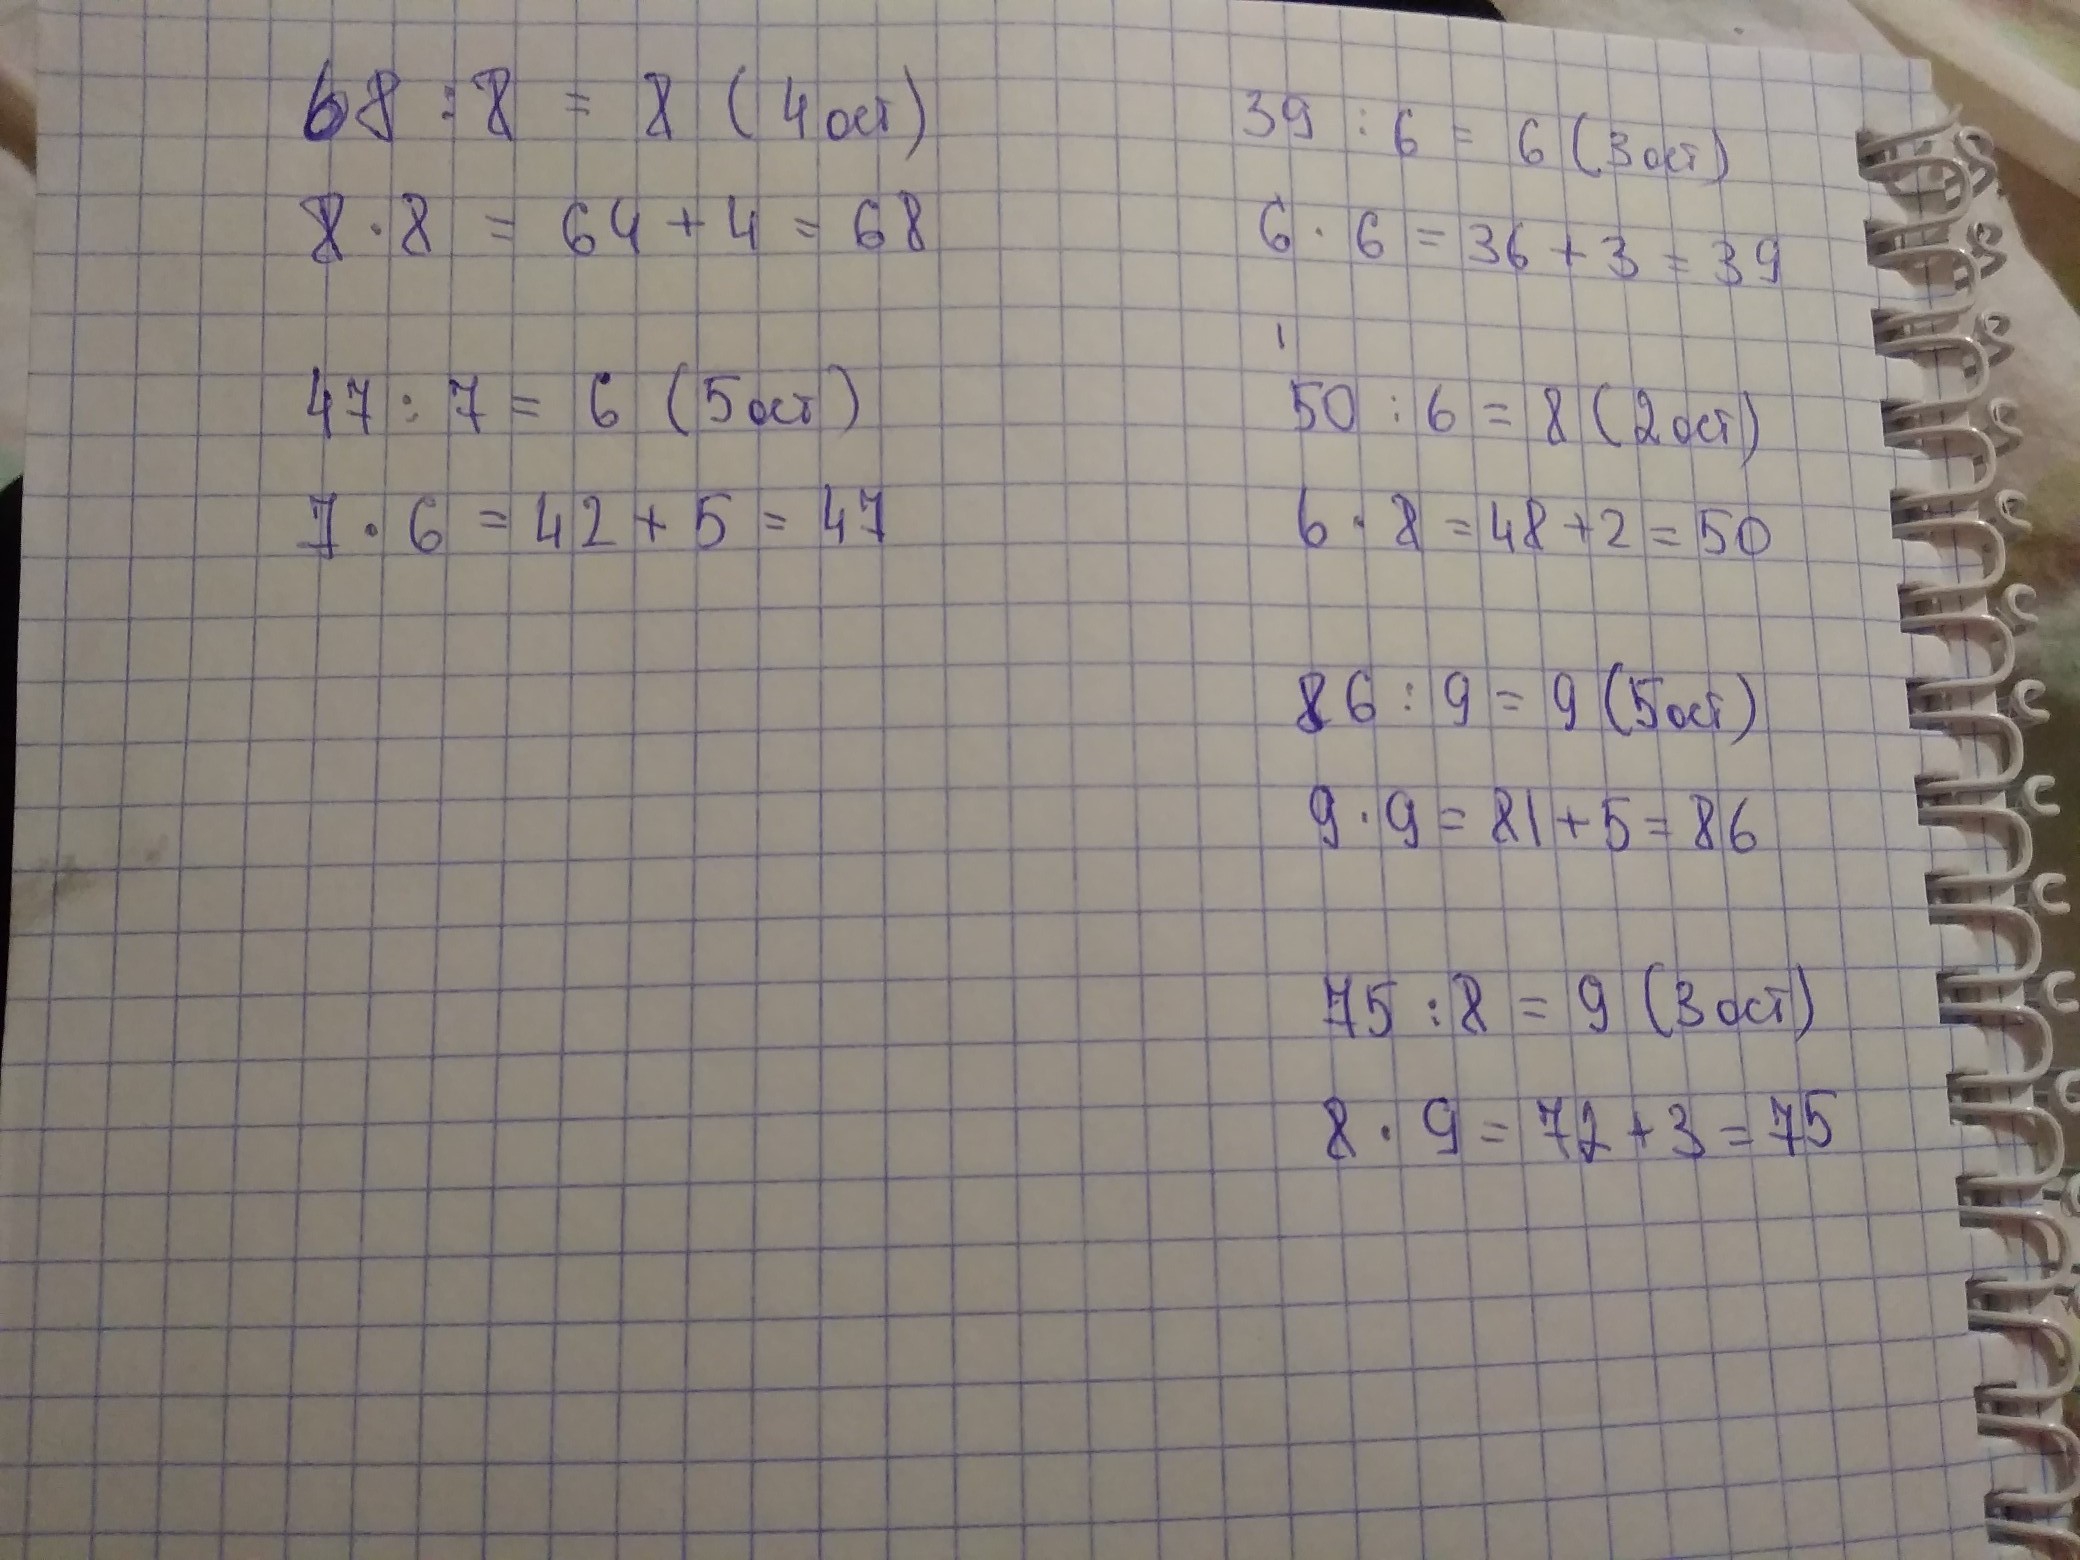 68 : 8 = 8 (4 ост)
8 · 8 = 64 + 4 = 68
47 : 7 = 6 (5 ост)
7 · 6 = 42 + 5 = 47
39 : 6 = 6 (3 ост)
6 · 6 = 36 + 3 = 39
50 : 6 = 8 (2 ост)
6 · 8 = 48 + 2 = 50
86 : 9 = 9 (5 ост)
9 · 9 = 81 + 5 = 86
75 : 8 = 9 (3 ост)
8 · 9 = 72 + 3 = 75